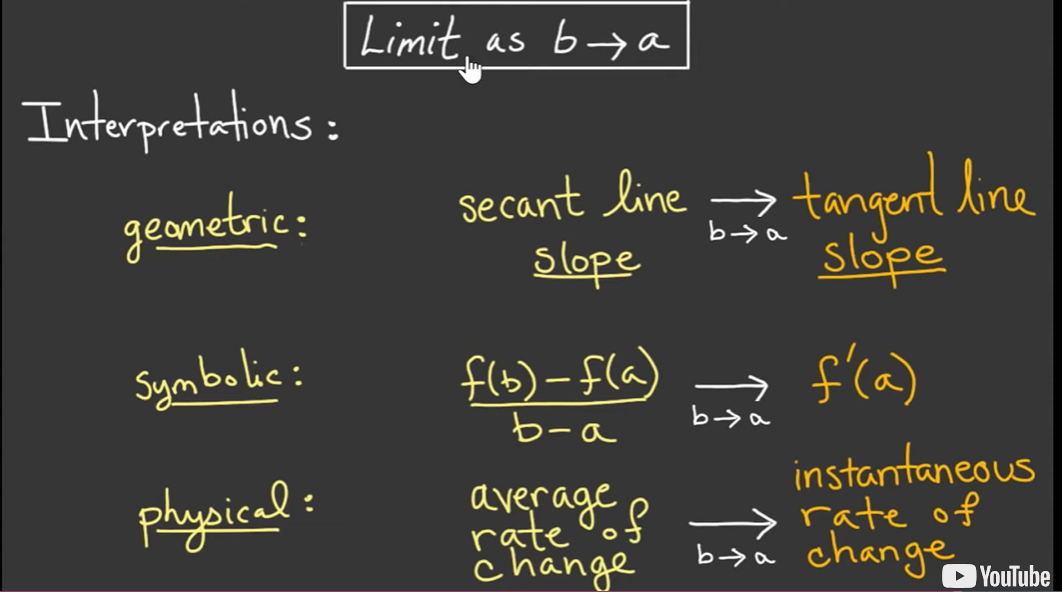 Limit as b → a
Interpretations:
geometric: secant line slope → b→a tangent line slope
symbolic: f(b) - f(a) / b - a → b→a f'(a)
physical: average rate of change → b→a instantaneous rate of change
YouTube